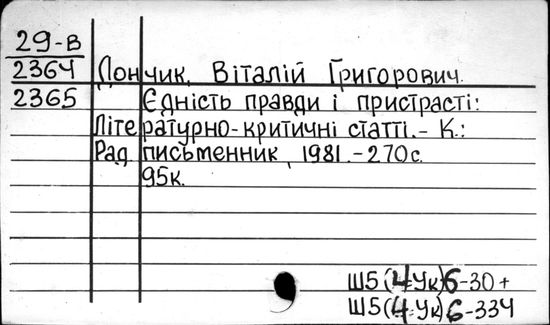 29-В
2364 Дончик, Віталій Григорович.
2365 Єдність правди і пристрасті:
Літературно-критичні статті. - К.:
Рад. письменник, 1981. - 270с.
95к.
Ш5(4=Ук)6-30+
Ш5(4=Ук)6-334